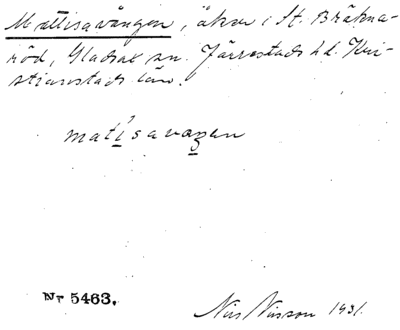 Mattisavången, åker i St. Bräkna-
röd, Gladsax sn. Järrestads hd. Kri-
stianstads län.
matisavaŋen
Nr 5463.
Nils Nilsson 1931.